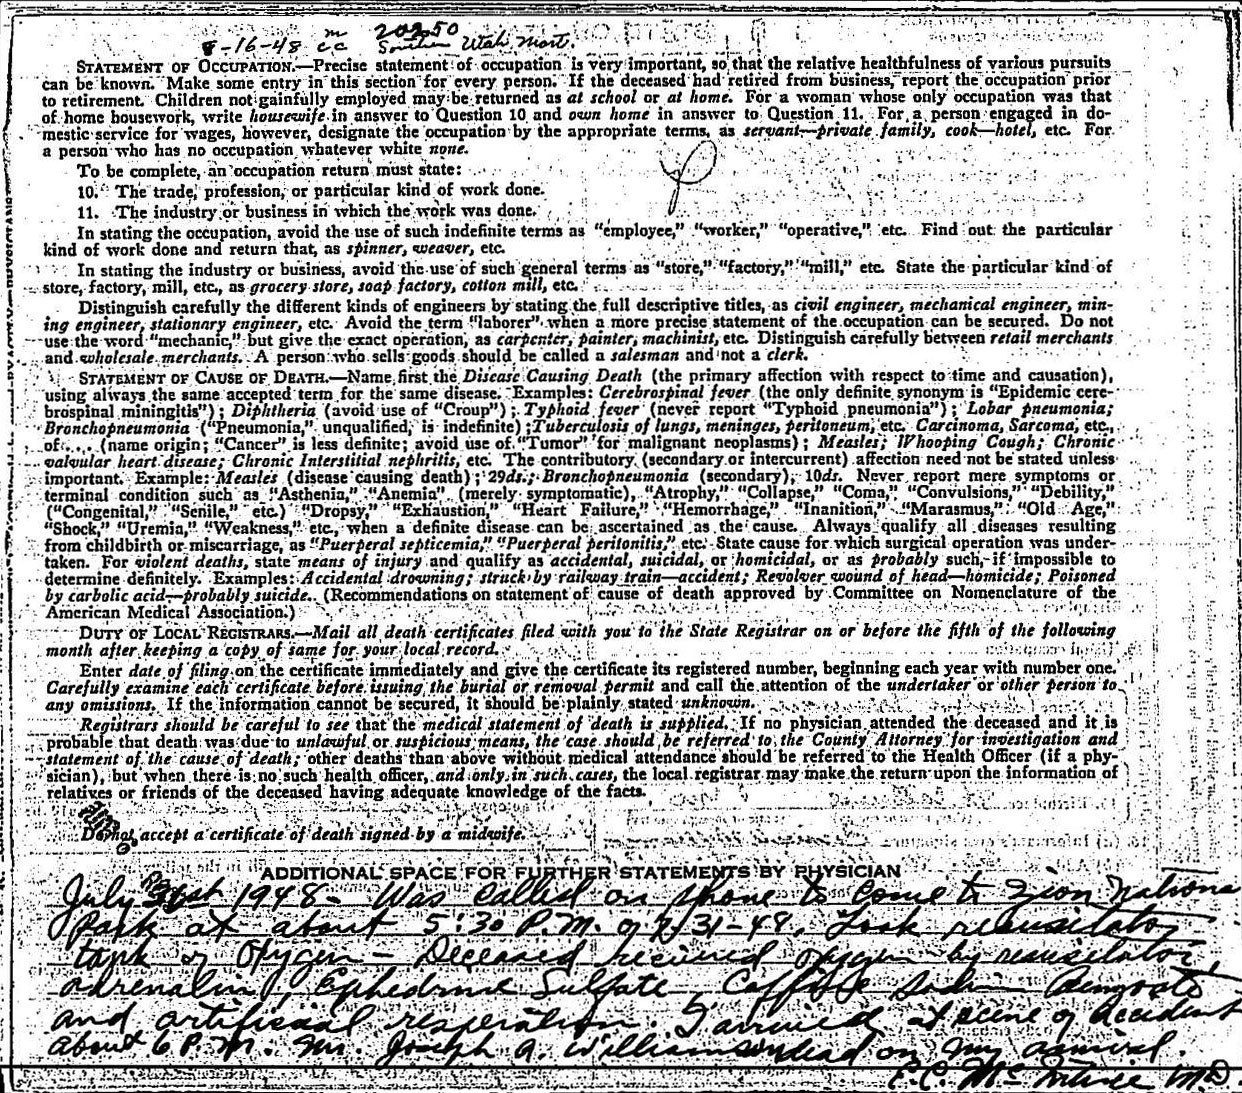 m 20250
8-16-48 cc Southern Utah Mort.
STATEMENT OF OCCUPATION.—Precise statement of occupation is very important, so that the relative healthfulness of various pursuits
can be known. Make some entry in this section for every person. If the deceased had retired from business, report the occupation prior
to retirement. Children not gainfully employed may be returned as at school or at home. For a woman whose only occupation was that
of home housework, write housewife in answer to Question 10 and own home in answer to Question 11. For a person engaged in do-
mestic service for wages, however, designate the occupation by the appropriate terms, as servant—private family, cook—hotel, etc. For
a person who has no occupation whatever white none.
To be complete, an occupation return must state:
10. The trade, profession, or particular kind of work done.
11. The industry or business in which the work was done.
In stating the occupation, avoid the use of such indefinite terms as "employee," "worker," "operative," etc. Find out the particular
kind of work done and return that, as spinner, weaver, etc.
In stating the industry or business, avoid the use of such general terms as "store," "factory," "mill," etc. State the particular kind of
store, factory, mill, etc., as grocery store, soap factory, cotton mill, etc.
Distinguish carefully the different kinds of engineers by stating the full descriptive titles, as civil engineer, mechanical engineer, min-
ing engineer, stationary engineer, etc. Avoid the term "laborer" when a more precise statement of the occupation can be secured. Do not
use the word "mechanic," but give the exact operation, as carpenter, painter, machinist, etc. Distinguish carefully between retail merchants
and wholesale merchants. A person who sells goods should be called a salesman and not a clerk.
STATEMENT OF CAUSE OF DEATH.—Name first the Disease Causing Death (the primary affection with respect to time and causation),
using always the same accepted term for the same disease. Examples: Cerebrospinal fever (the only definite synonym is "Epidemic cere-
brospinal miningitis"); Diphtheria (avoid use of "Croup"); Typhoid fever (never report "Typhoid pneumonia"); Lobar pneumonia;
Bronchopneumonia ("Pneumonia," unqualified, is indefinite); Tuberculosis of lungs, meninges, peritoneum, etc. Carcinoma, Sarcoma, etc.,
of.... (name origin; "Cancer" is less definite; avoid use of "Tumor" for malignant neoplasms); Measles; Whooping Cough; Chronic
valvular heart disease; Chronic Interstitial nephritis, etc. The contributory (secondary or intercurrent) affection need not be stated unless
important. Example: Measles (disease causing death); 29ds.; Bronchopneumonia (secondary), 10ds. Never report mere symptoms or
terminal condition such as "Asthenia," "Anemia" (merely symptomatic), "Atrophy," "Collapse," "Coma," "Convulsions," "Debility,"
("Congenital," "Senile," etc.) "Dropsy," "Exhaustion," "Heart Failure," "Hemorrhage," "Inanition," "Marasmus," "Old Age,"
"Shock," "Uremia," "Weakness," etc., when a definite disease can be ascertained as the cause. Always qualify all diseases resulting
from childbirth or miscarriage, as "Puerperal septicemia," "Puerperal peritonitis," etc. State cause for which surgical operation was under-
taken. For violent deaths, state means of injury and qualify as accidental, suicidal, or homicidal, or as probably such, if impossible to
determine definitely. Examples: Accidental drowning; struck by railway train—accident; Revolver wound of head—homicide; Poisoned
by carbolic acid—probably suicide. (Recommendations on statement of cause of death approved by Committee on Nomenclature of the
American Medical Association.)
DUTY OF LOCAL REGISTRARS.—Mail all death certificates filed with you to the State Registrar on or before the fifth of the following
month after keeping a copy of same for your local record.
Enter date of filing on the certificate immediately and give the certificate its registered number, beginning each year with number one.
Carefully examine each certificate before issuing the burial or removal permit and call the attention of the undertaker or other person to
any omissions. If the information cannot be secured, it should be plainly stated unknown.
Registrars should be careful to see that the medical statement of death is supplied. If no physician attended the deceased and it is
probable that death was due to unlawful or suspicious means, the case should be referred to the County Attorney for investigation and
statement of the cause of death; other deaths than above without medical attendance should be referred to the Health Officer (if a phy-
sician), but when there is no such health officer, and only in such cases, the local registrar may make the return upon the information of
relatives or friends of the deceased having adequate knowledge of the facts.
Do not accept a certificate of death signed by a midwife.
ADDITIONAL SPACE FOR FURTHER STATEMENTS BY PHYSICIAN
July 31st 1948 - Was called on phone to come to Zion National
Park at about 5:30 P.M. of 7-31-48. Took resusitator
tank of Oxygen - Deceased received oxygen by resusitator,
adrenalin, Ephedrine Sulfate, Caffine Sodium Benzoate
and artificial respiration. I arrived at scene of accident
about 6 P.M. Mr. Joseph A. Williams dead on my arrival.
M.D.